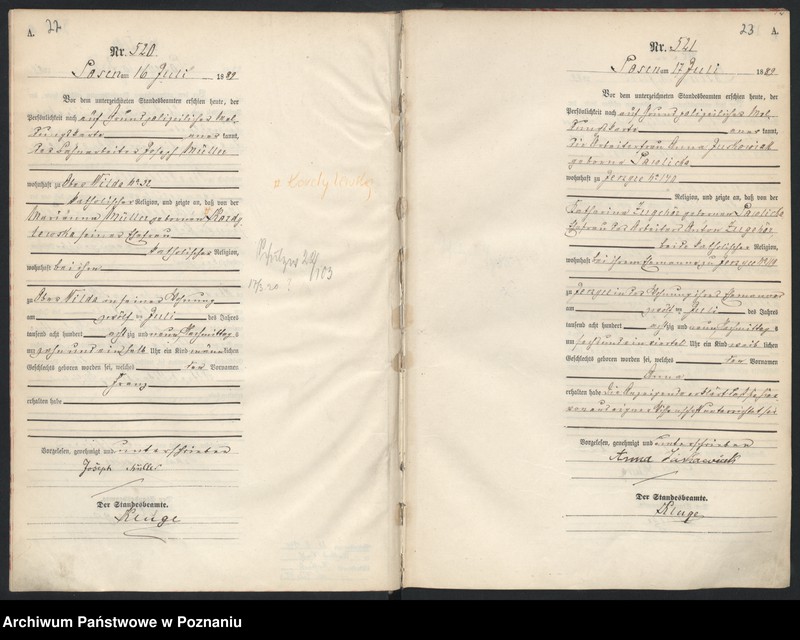 A. 22
Nr. 520.
Posen am 16 Juli 1889
Vor dem unterzeichneten Standesbeamten erschien heute, der
Persönlichkeit nach auf Grund polizeilicher Mel-
dungskarte anerkannt,
Joseph Müller
wohnhaft zu Ober Wilda No 32
katholischer Religion, und zeigte an, daß von der
Marianna Müller geborenen
seiner Ehefrau
katholischer Religion,
wohnhaft bei ihm
zu Ober Wilda in seiner Wohnung
am zwölften Juli des Jahres
tausend acht hundert achtzig und neun Nachmittag s
um zehn und ein halb Uhr ein Kind männlichen
Geschlechts geboren worden sei, welches der Vornamen
Franz
erhalten habe
Vorgelesen, genehmigt und unterschrieben
Joseph Müller
Der Standesbeamte.
Kluge
23 A.
Nr. 521
Posen am 17 Juli 1889
Vor dem unterzeichneten Standesbeamten erschien heute, der
Persönlichkeit nach auf Grund polizeilicher Mel-
dungskarte anerkannt,
die Arbeiterfrau Anna
geborene
wohnhaft zu Jerzyce No 140
Religion, und zeigte an, daß von der
Katharina geborenen
Ehefrau des Arbeiters Anton
beide katholischer Religion,
wohnhaft bei ihrem Ehemanne zu Jerzyce
zu Jerzyce in der Wohnung ihres Ehemannes
am zwölften Juli des Jahres
tausend acht hundert achtzig und neun Nachmittag s
um sechs und ein viertel Uhr ein Kind weiblichen
Geschlechts geboren worden sei, welches den Vornamen
Anna
erhalten habe Die Anzeigende erklärt daß sie
von aus eigener Wissenschaft unterrichtet sei
Vorgelesen, genehmigt und unterschrieben
Anna
Der Standesbeamte.
Kluge
Archiwum Państwowe w Poznaniu